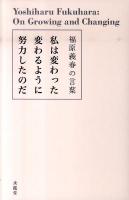 Yoshiharu Fukuhara:
On Growing and Changing
福原義春の言葉
私は変わった
変わるように
努力したのだ
求龍堂